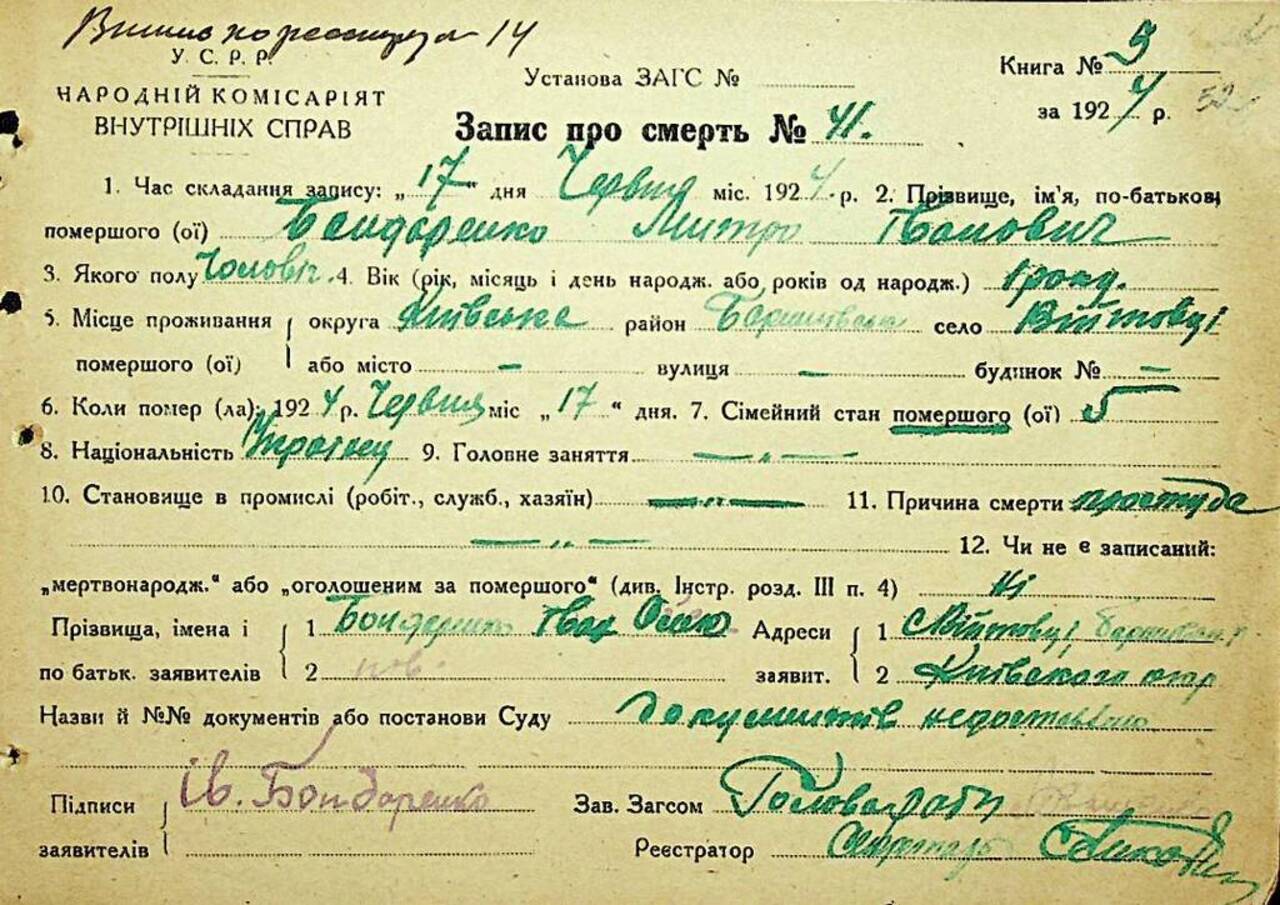 14
У. С. Р. Р.
НАРОДНІЙ КОМІСАРІЯТ
ВНУТРІШНІХ СПРАВ
Установа ЗАГС №
Книга № 5
за 1924 р. 52
Запис про смерть № 41.
1. Час складання запису: „ 17 “ дня Червня міс. 1924 р. 2. Прізвище, ім'я, по-батькові
помершого (ої) Бондаренко Митро Іванович
3. Якого полу Чоловіч. 4. Вік (рік, місяць і день народж. або років од народж.)
5. Місце проживання { округа Київська район село Війтовці
помершого (ої) або місто - вулиця - будинок № -
6. Коли помер (ла): 1924 р. Червня міс „ 17 “ дня. 7. Сімейний стан помершого (ої) 5
8. Національність 9. Головне заняття — „ —
10. Становище в промислі (робіт., служб., хазяїн) — „ — 11. Причина смерти простуда
— „ — 12. Чи не є записаний:
„мертвонародж.“ або „оголошеним за помершого“ (див. Інстр. розд. III п. 4) Ні
Прізвища, імена і { 1 Бондаренко Іван Адреси { 1 с. Війтовці,
по батьк. заявителів 2 нов. заявит. 2 Київского
Назви й №№ документів або постанови Суду Документів
Підписи { Ів. Бондаренко Зав. Загсом Голова ради
заявителів Реєстратор Секретарь